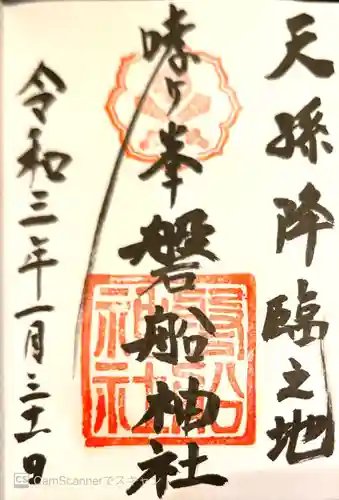 天孫降臨之地
哮ヶ峯
磐船神社
令和三年一月三十一日
磐船
神社
CS CamScannerでスキャン